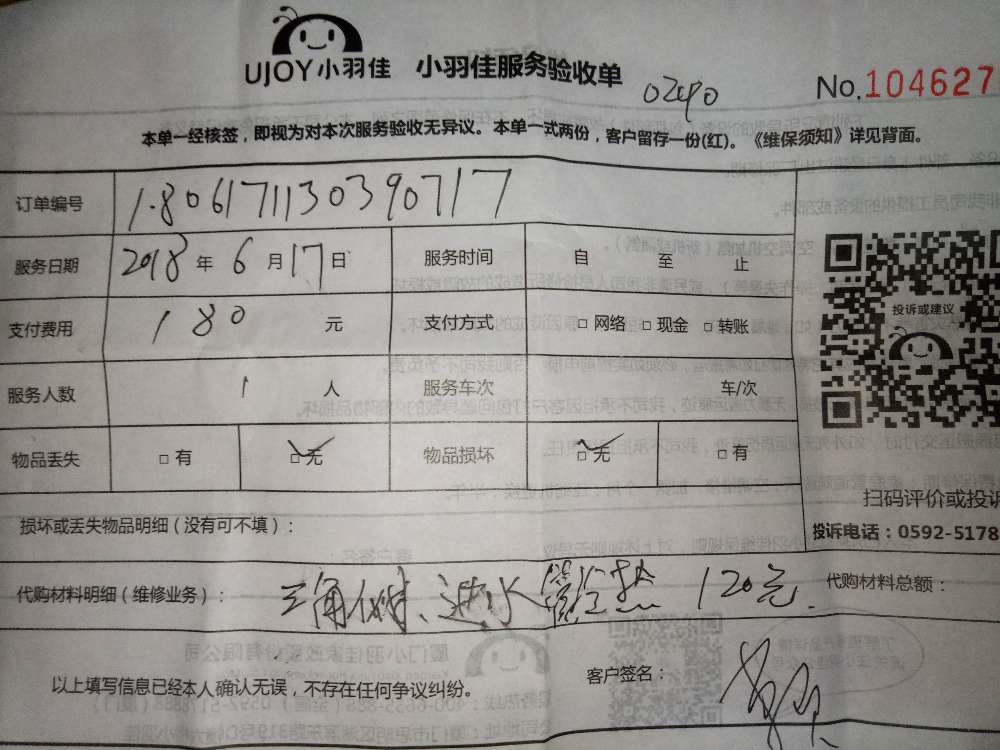 UJOY小羽佳 小羽佳服务验收单 0240 No.104627
本单一经核签，即视为对本次服务验收无异议。本单一式两份，客户留存一份(红)。《维保须知》详见背面。
订单编号 1806171130390717
服务日期 2018年6月17日 服务时间 自 至 止
投诉或建议
支付费用 180元 支付方式 □网络 □现金 □转账
服务人数 1人 服务车次 车/次
物品丢失 □有 □无 物品损坏 □无 □有
扫码评价或投诉
损坏或丢失物品明细（没有可不填）：
投诉电话：0592-5178
代购材料明细（维修业务）： 三角 进水管 120元. 代购材料总额：
以上填写信息已经本人确认无误，不存在任何争议纠纷。 客户签名：